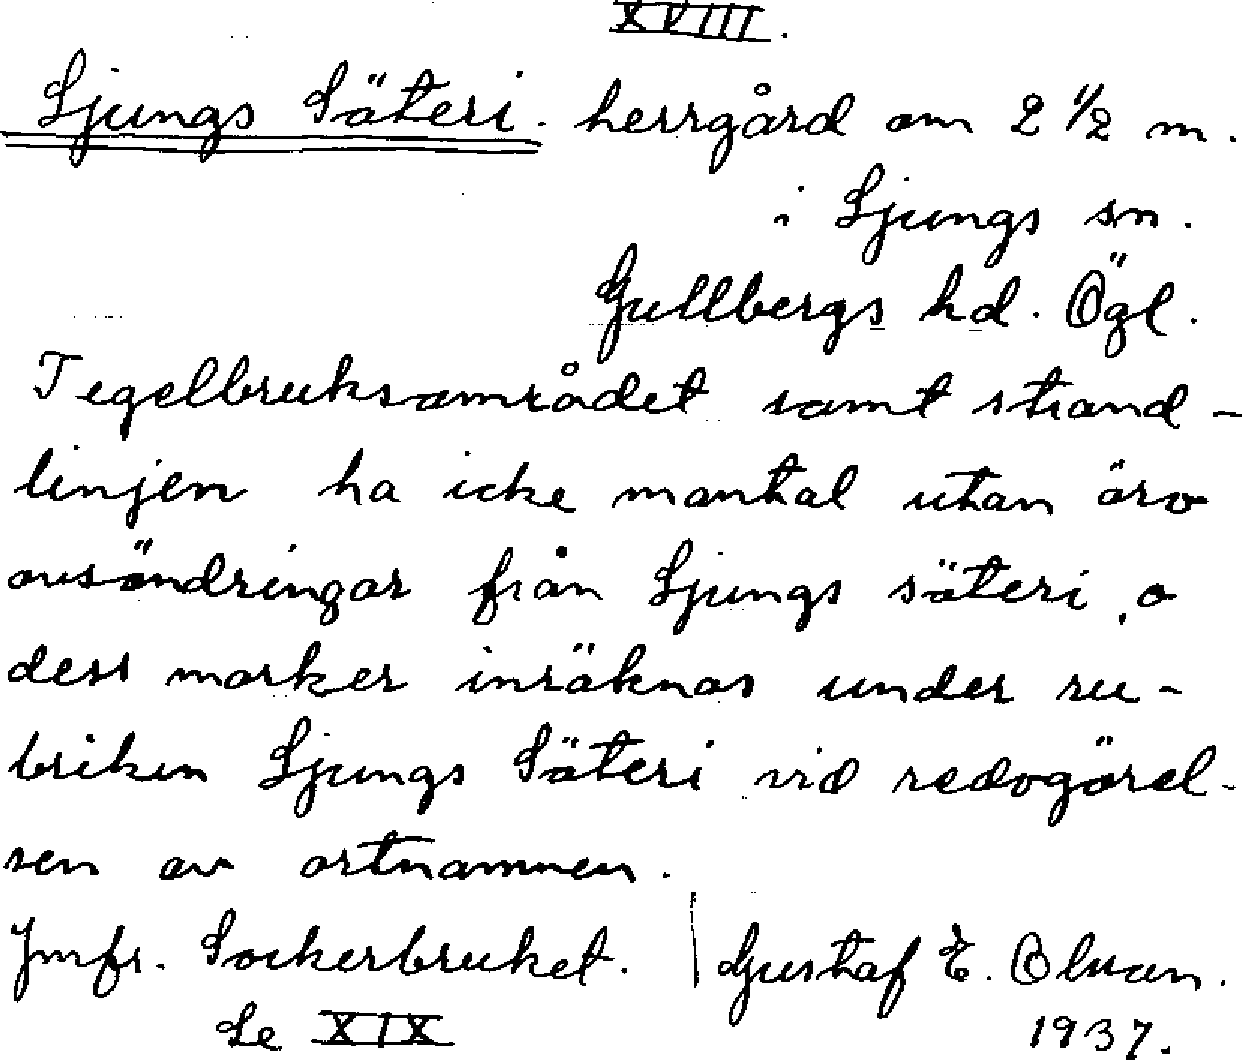 XVIII.
Ljungs Säteri. herrgård om 2 1/2 m.
i Ljungs sn.
Gullbergs hd. Ögl.
Tegelbruksområdet samt strand-
linjen ha icke mantal utan äro
avsöndringar från Ljungs säteri, o
dess marker inräknas under ru-
briken Ljungs Säteri vid redogörel-
sen av ortnamnen.
Jmfr. Sockerbruket. | Gustaf E. Olsson.
Se XIX 1937.